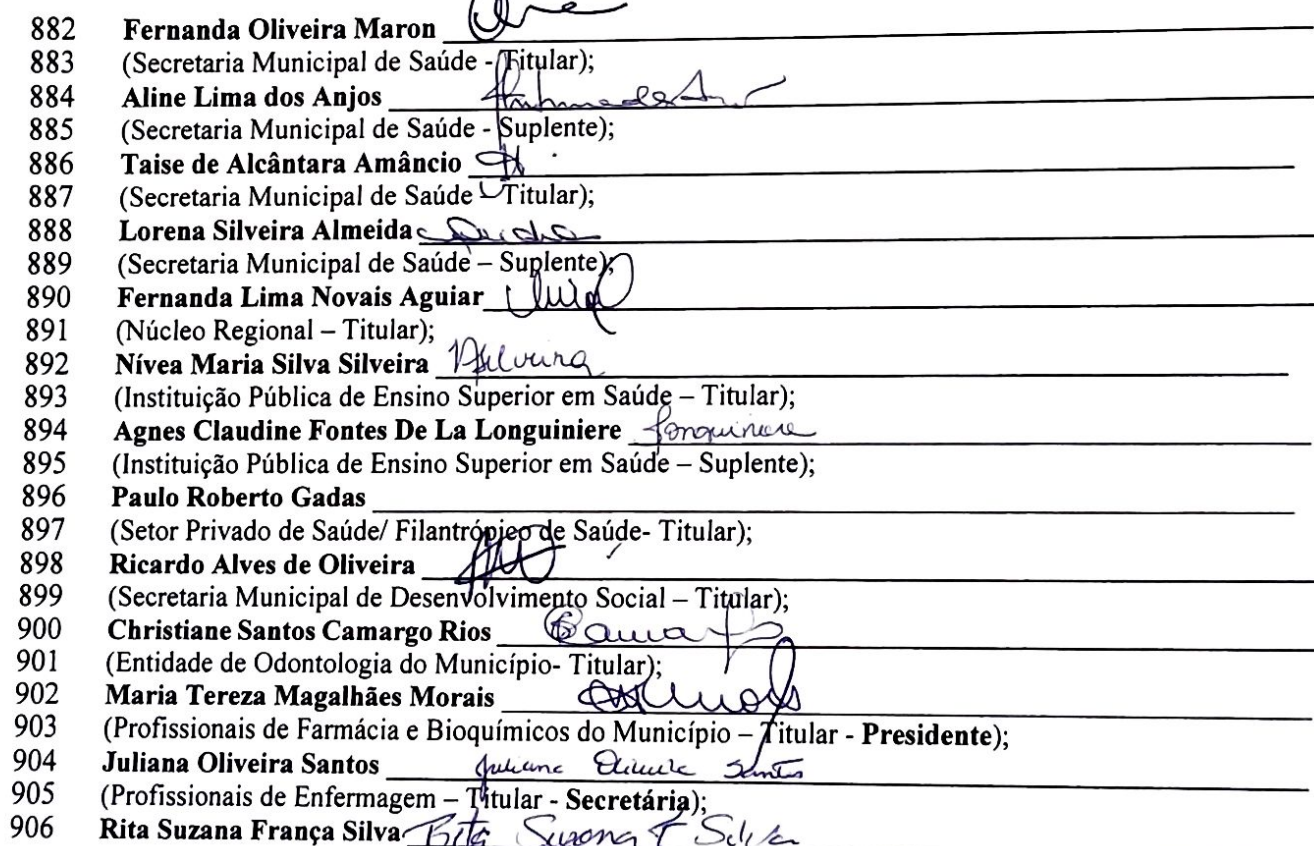 882 Fernanda Oliveira Maron
883 (Secretaria Municipal de Saúde - Titular);
884 Aline Lima dos Anjos
885 (Secretaria Municipal de Saúde - Suplente);
886 Taise de Alcântara Amâncio
887 (Secretaria Municipal de Saúde - Titular);
888 Lorena Silveira Almeida
889 (Secretaria Municipal de Saúde – Suplente);
890 Fernanda Lima Novais Aguiar
891 (Núcleo Regional – Titular);
892 Nívea Maria Silva Silveira NSilveira
893 (Instituição Pública de Ensino Superior em Saúde – Titular);
894 Agnes Claudine Fontes De La Longuiniere Longuiniere
895 (Instituição Pública de Ensino Superior em Saúde – Suplente);
896 Paulo Roberto Gadas
897 (Setor Privado de Saúde/ Filantrópico de Saúde- Titular);
898 Ricardo Alves de Oliveira
899 (Secretaria Municipal de Desenvolvimento Social – Titular);
900 Christiane Santos Camargo Rios
901 (Entidade de Odontologia do Município- Titular);
902 Maria Tereza Magalhães Morais
903 (Profissionais de Farmácia e Bioquímicos do Município – Titular - Presidente);
904 Juliana Oliveira Santos Juliana Oliveira Santos
905 (Profissionais de Enfermagem – Titular - Secretária);
906 Rita Suzana França Silva Rita Suzana F Silva